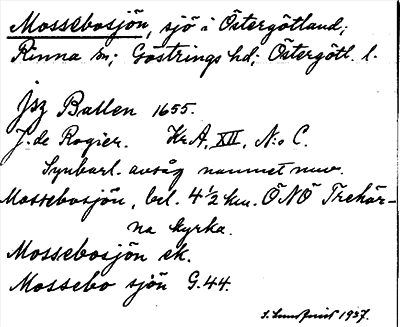 Mossebosjön, sjö i Östergötland;
Rinna sn; Göstrings hd; Östergötl. l.
jsz Ballen 1655.
J. de Rogier. Kr A, XII, N:o C.
Synbarl. avsåg namnet nuv.
Mossebosjön, bel. 4 ½ km. ÖNÖ Trehör-
na kyrka.
Mossebosjön ek.
Mossebo sjön G.44.
S. Lundqvist 1937.